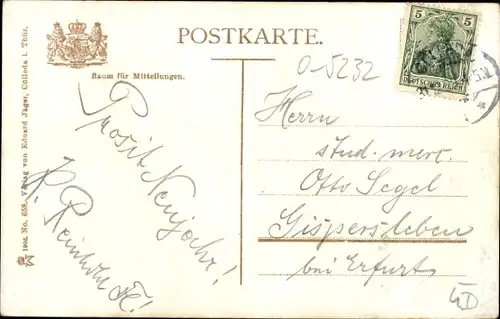 POSTKARTE.
Raum für Mitteilungen.
5
5
DEUTSCHES REICH
O-5232
Prosit Neujahr!
Herrn
stud. merc.
Otto Segel
Gispersleben
bei Erfurt
1904 No. 658. Verlag von Eduard Jäger, Cölleda i. Thür.